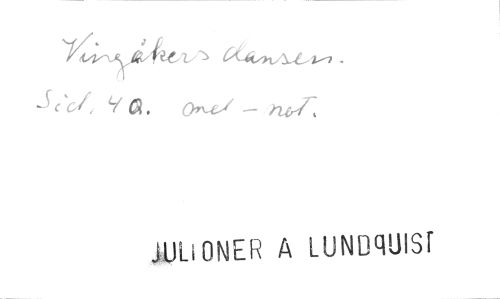 Vingåkers dansen.
Sid. 40. med - not.
JULIONER A LUNDQUIST